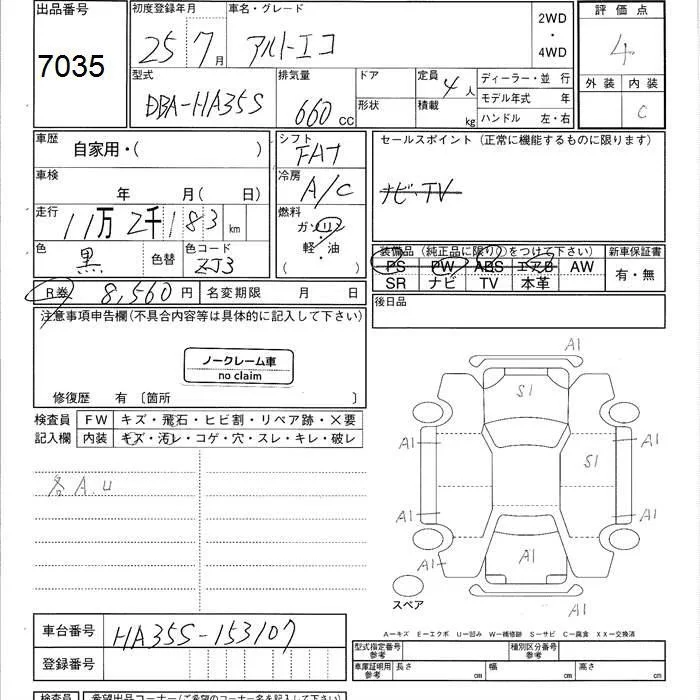 出品番号 初度登録年月 車名・グレード 評価点
7035 25 7月 アルトエコ 2WD・4WD 4
型式 排気量 ドア 定員 4人 ディーラー・並 行 外装 内装
DBA-HA35S 660cc 形状 積載 kg モデル年式 年 C
ハンドル 左・右
車歴 自家用・( ) シフト FAT セールスポイント (正常に機能するものに限ります)
車検 年 月( 日) 冷房 A/C ナビ・TV
走行 11万2千183km 燃料 ガソリン
軽・油
( )
色 黒 色替 色コード ZJ3 装備品 (純正品に限り○をつけて下さい) 新車保証書
PS PW ABS エアB AW 有・無
SR ナビ TV 本革
R券 8,560円 名変期限 月 日 後日品
注意事項申告欄(不具合内容等は具体的に記入して下さい)
ノークレーム車
no claim
修復歴 有 〔箇所 〕
検査員 FW キズ・飛石・ヒビ割・リペア跡・×要
記入欄 内装 キズ・汚レ・コゲ・穴・スレ・キレ・破レ
各A.U
A1
S1
A1 A1
S1
A1 A1
A1
A1 A1
A1
スペア
A―キズ E―エクボ U―凹み W―補修跡 S―サビ C―腐食 XX―交換済
車台番号 HA35S-153107
型式指定番号 参考 種別区分番号 参考
登録番号 車庫証明用 参考 長さ cm 幅 cm 高さ cm
検査員 希望出品コーナー(ご希望のコーナー名を記入下さい)